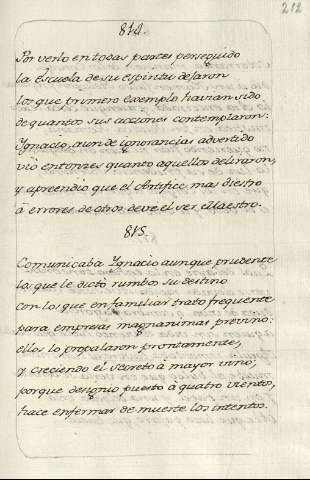 212
814.
Por verlo en todas partes perseguido
la Escuela de su espiritu dejaron
los que primero exemplo havian sido
de quantos sus acciones contemplaron:
Ygnacio, aun de ignorancias advertido
vio entonzes quanto aquellos deliraron,
y aprendio que el Artifice mas diestro
â errores de otros deve el ser Maestro.
815.
Comunicaba Ygnacio aunque prudente
los que le dictò rumbos su destino
con los que en familiar trato frequente
para empresas magnanimas previno:
ellos lo propalaron prontamente,
y creciendo el secreto â mayor vino,
porque designio puesto â quatro vientos,
hace enfermar de muerte los intentos.